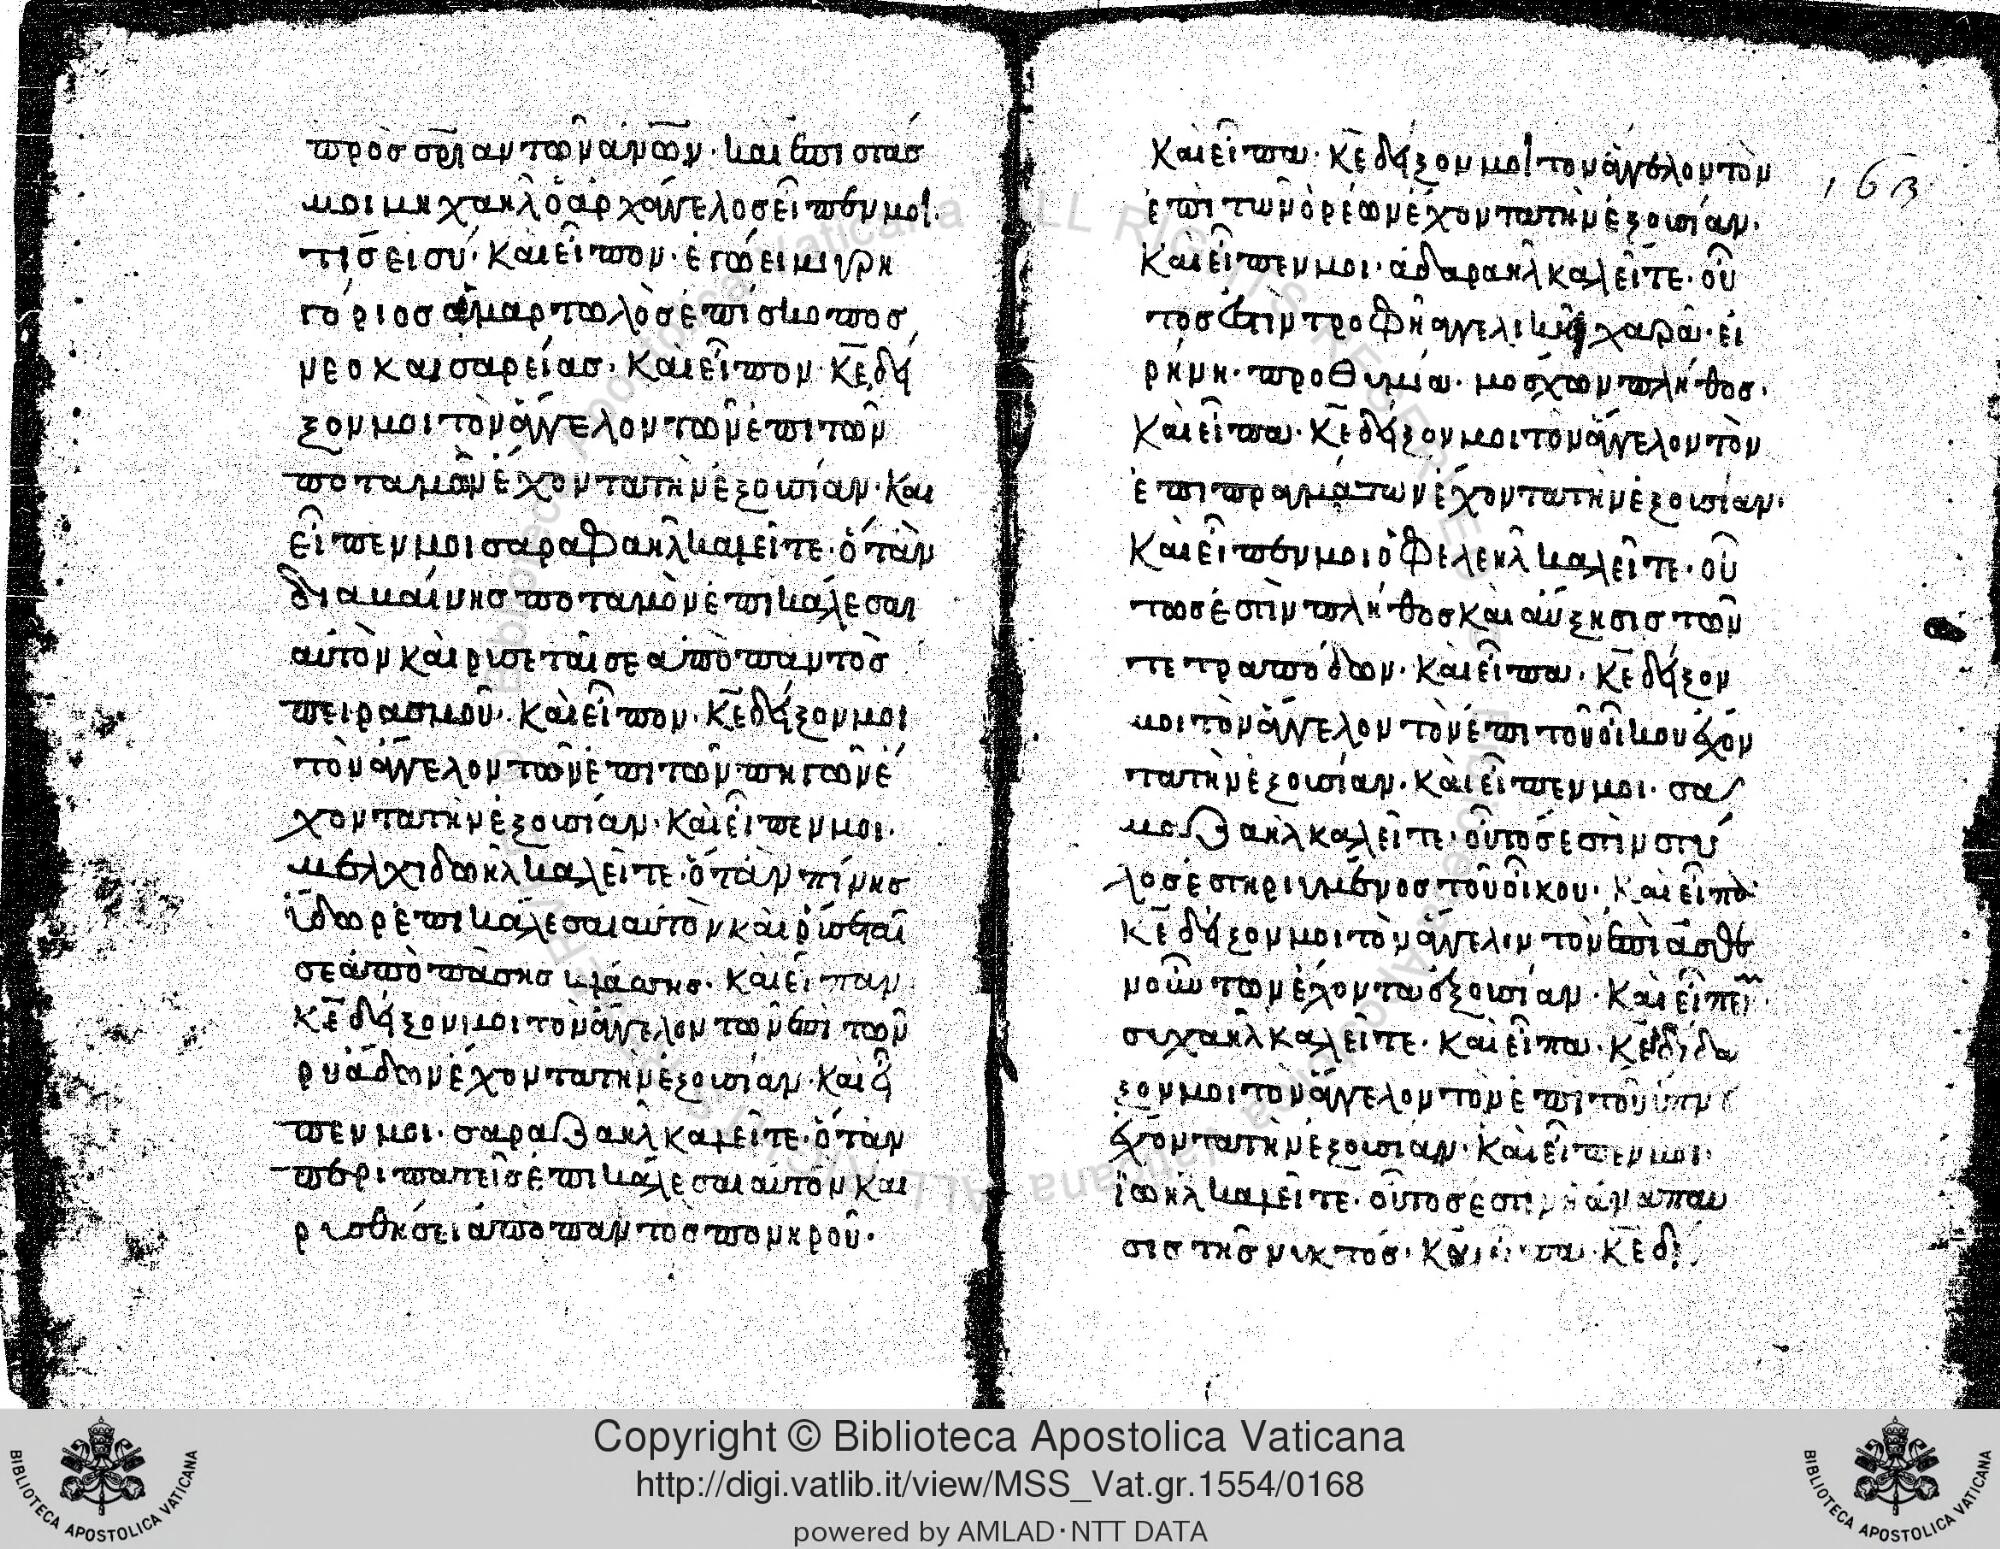 πρὸς σρίαν τῶν ἀνῶν· καὶ ἐπιστάς
μοι μηχαὴλ ὁ ἀρχάγγελος εἶπεν μοι·
τίς εἶ σύ· Καὶ εἶπον· ἐγώ εἰμι γρη
γόριος ἁμαρτωλὸς ἐπίσκοπος
νεοκαισαρείας. Καὶ εἶπον Κε δεῖ
ξον μοι τὸν ἄγγελον τῶν ἐπὶ τῶν
ποταμῶν ἔχοντα τὴν ἐξουσίαν· Και
εἶπεν μοι σαραφαὴλ καλεῖτε· ὅταν
διακαίνης ποταμὸν ἐπικάλεσαι
αὐτὸν καὶ ρισεταί σε ἀπὸ παντὸς
πειρασμοῦ. Καὶ εἶπον· Κε δεῖξον μοι
τὸν ἄγγελον τῶν ἐπὶ τῶν πηγῶν ἔ
χοντα τὴν ἐξουσίαν· Καὶ εἶπεν μοι·
μελχιδωὴλ καλεῖτε· ὅταν πίνης
ὕδωρ ἐπικάλεσαι αὐτὸν καὶ ρύσεται
σε ἀπὸ πάσης Καὶ εἶπαν
Κε δεῖξον μοι τὸν ἄγγελον τῶν ἐπὶ τῶν
ρυάδων ἔχοντα τὴν ἐξουσίαν· Και εἶ
πεν μοι· σαραβαὴλ καλεῖτε· ὅταν
περιπατεῖς ἐπικάλεσαι αὐτόν και
ρυσθήσει ἀπὸ παντὸς πονηροῦ·
Καὶ εἶπα· Κε δεῖξον μοι τον ἄγγελον τὸν
ἐπὶ τῶν ὀρέων ἔχοντα τὴν ἐξουσίαν·
Καὶ εἶπεν μοι· ἀδαραὴλ καλεῖτε· οὗ
τος ἐστὶν τροφὴ ἀγγελικὴ χαρᾶ· εἰ
ρήνη· προθυμία· μοσχων πλήθος·
Καὶ εἶπα· Κε δεῖξον μοι τὸν ἄγγελον τὸν
ἐπὶ πραγμάτων ἔχοντα τὴν ἐξουσίαν·
Καὶ εἶπεν μοι ὀφελεὴλ καλεῖτε· οὗ
τος ἐστὶν πλήθος καὶ αὔξησις τῶν
τετραπόδων· Καὶ εἶπα· Κε δεῖξον
μοι τὸν ἄγγελον τὸν ἐπὶ τοῦ οἴκου ἔχον
τα τὴν ἐξουσίαν· Καὶ εἶπεν μοι· σα
μοβαὴλ καλεῖτε· οὗτός ἐστὶν στύ
λος ἐστηριγμένος τοῦ οἴκου· Καὶ εἶπο
Κε δεῖξον μοι τὸν ἄγγελον τὸν ἐπὶ ἀσθε
νούντων ἔχοντα ἐξουσίαν· Καὶ εἶπεν
συχαὴλ καλεῖτε· Καὶ εἶπα·
ξον μοι τὸν ἄγγελον τὸν ἐπὶ τοῦ ὕπν
ἔχοντα τὴν ἐξουσίαν· Καὶ εἶπεν μοι·
ἰωὴλ καλεῖτε· οὗτός ἐστιν ἡ ἀνάπαυ
σις τῆς νυκτός· Κε δεῖ
163
Copyright © Biblioteca Apostolica Vaticana
http://digi.vatlib.it/view/MSS_Vat.gr.1554/0168
powered by AMLAD·NTT DATA
BIBLIOTECA APOSTOLICA VATICANA
BIBLIOTECA APOSTOLICA VATICANA